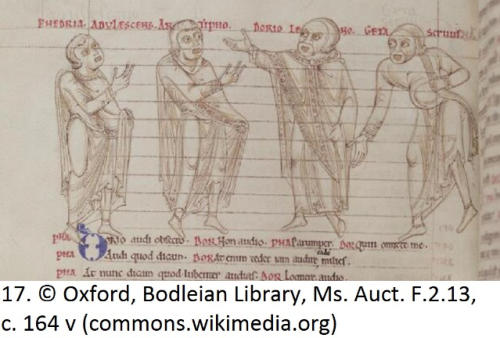 PHEDRIA. ADVLESCENS. AN PHO. DORIO LE NO. GETA SERVVS
PHA DORIO audi obsecro. DOR Non audio. PHA Parumper. DOR Quin omitte me.
PHA Audi quod dicam. DOR At enim tedet iam audire milies.
PHA At nunc dicam quod lubenter audias. DOR Loquere audio.
17. © Oxford, Bodleian Library, Ms. Auct. F.2.13,
c. 164 v (commons.wikimedia.org)